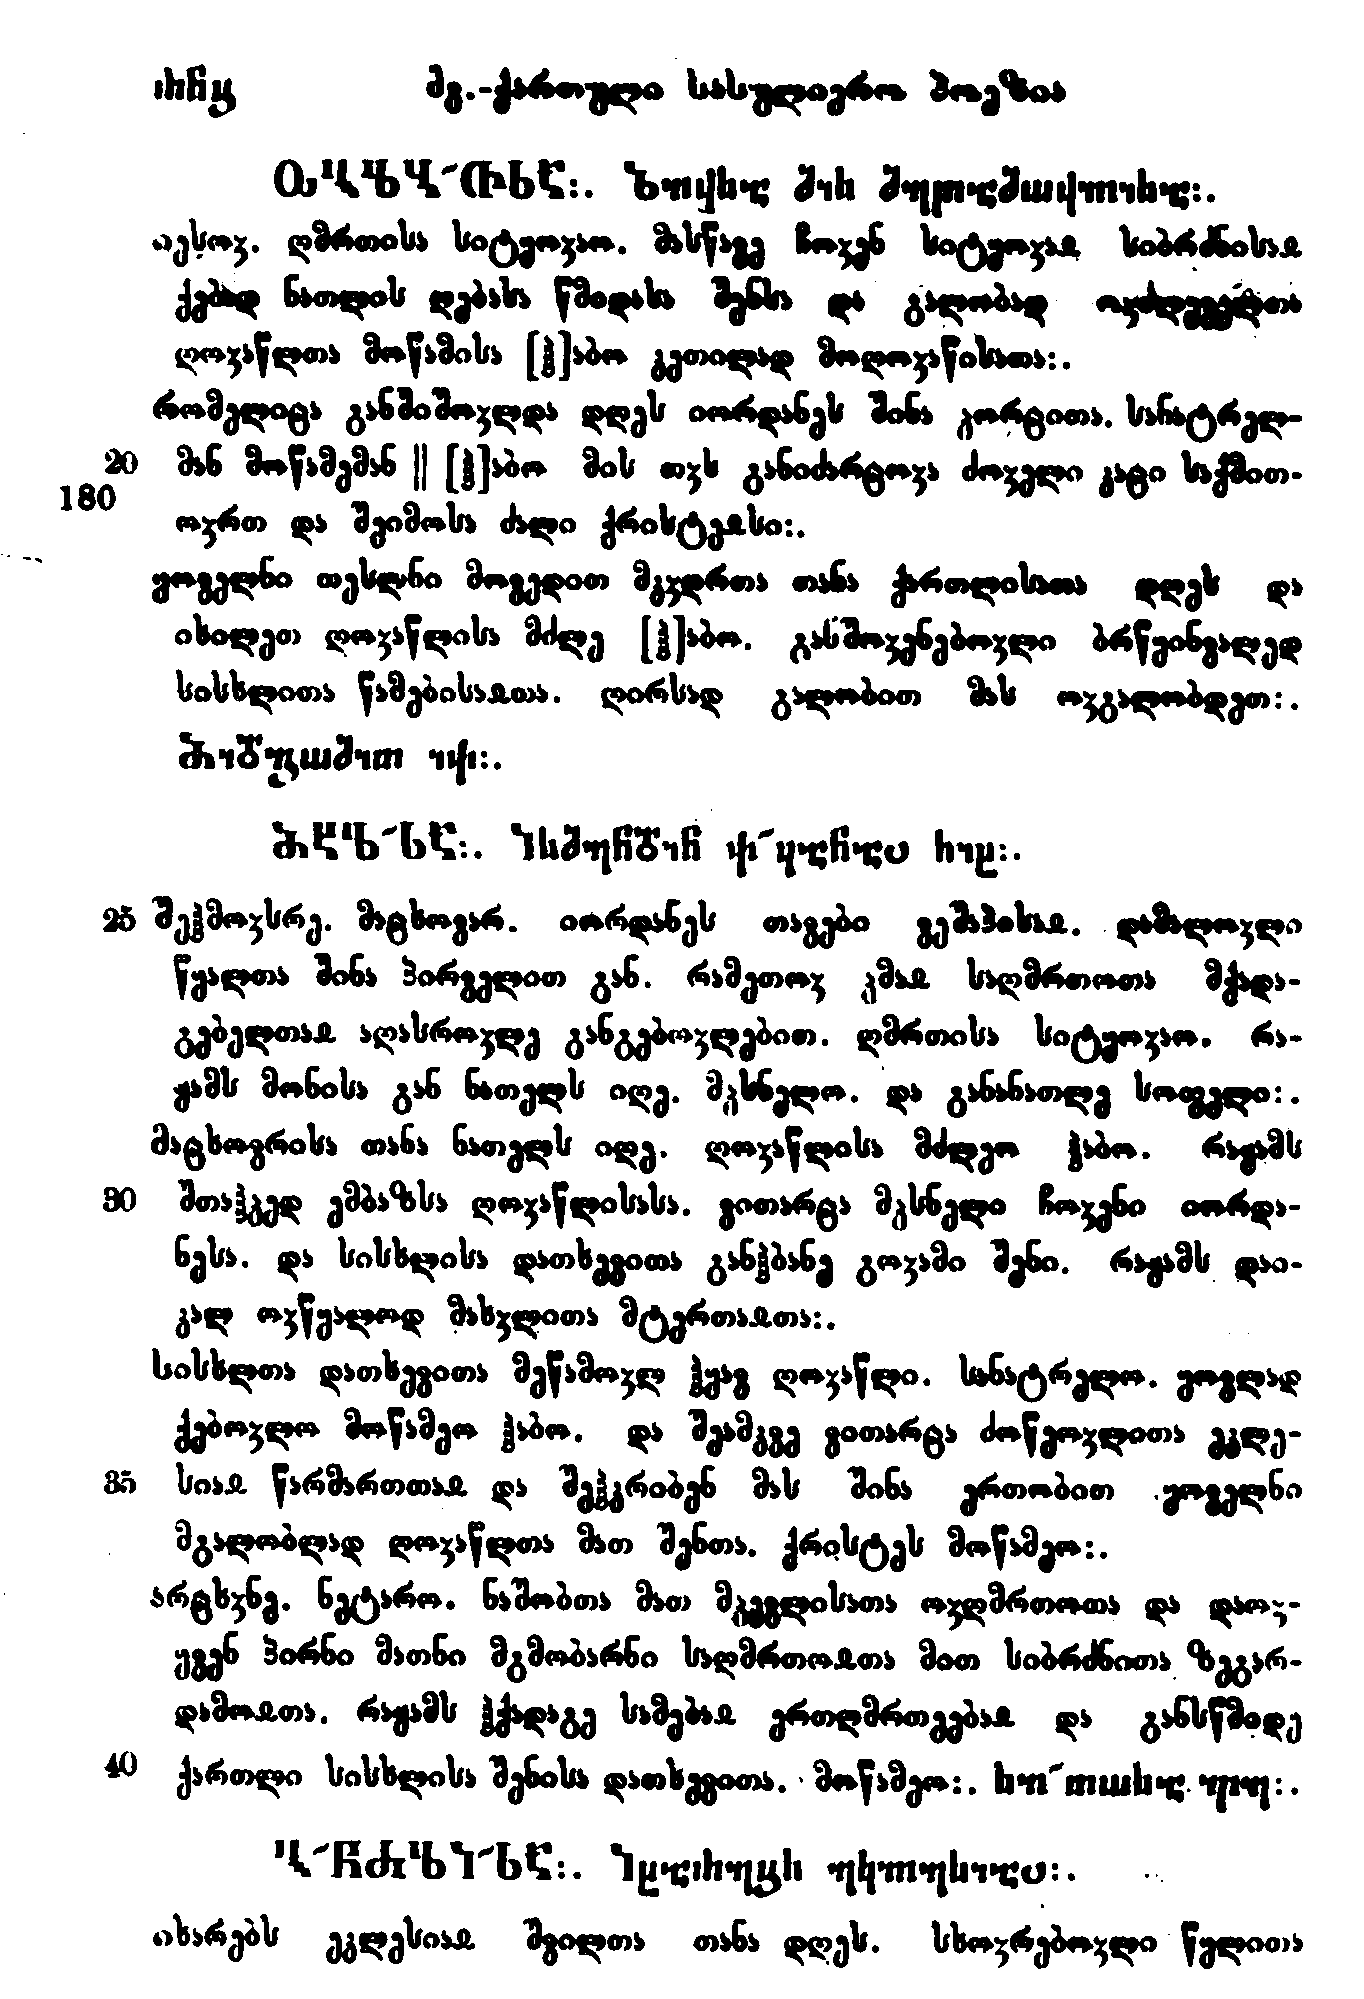 ძგ.-ქართული სასულიერო პოეზია
იესოჳ. ღმრთისა სიტყოჳაო. მასწავე ჩოჳენ სიტყოჳაჲ სიბრძნისაჲ
ქებად ნათლის ღებასა წმიდასა შენსა და გალობად
ღოჳაწლთა მოწამისა [ჰ]აბო კეთილად მოღოჳაწისათა:.
რომელიცა განშიშოჳლდა დღეს იორდანეს შინა კორცითა. სანატრელ-
20 მან მოწამემან || [ჰ]აბო მის თჳს განიძარცოჳა ძოჳელი კაცი საქმით-
180
ოჳრთ და შეიმოსა ძალი ქრისტეჲსი:.
ყოველნი თესლნი მოვედით მკჳდრთა თანა ქართლისათა დღეს და
იხილეთ ღოჳაწლისა მძლე [ჰ]აბო. განშოჳენებოჳლი ბრწყინვალედ
სისხლითა წამებისაჲთა. ღირსად გალობით მას ოჳგალობდეთ:.
25 შეჰმოჳსრე. მაცხოვარ. იორდანეს თავები ვეშაპისაჲ. დამალოჳლი
წყალთა შინა პირველით გან. რამეთოჳ კმაჲ საღმრთოთა მქადა-
გებელთაჲ აღასროჳლე განგებოჳლებით. ღმრთისა სიტყოჳაო. რა-
ჟამს მონისა გან ნათელს იღე. მკსნელო. და განანათლე სოფელი:.
მაცხოვრისა თანა ნათელს იღე. ღოჳაწლისა მძლეო ჰაბო. რაჟამს
30 შთაჰკედ ემბაზსა ღოჳაწლისასა. ვითარცა მკსნელი ჩოჳენი იორდა-
ნესა. და სისხლისა დათხევითა განჰბანე გოჳამი შენი. რაჟამს დაი-
კალ ოჳწყალოდ მახჳლითა მტერთაჲთა:.
სისხლთა დათხევითა მეწამოჳლ ჰყავ ღოჳაწლი. სანატრელო. ყოვლად
ქებოჳლო მოწამეო ჰაბო. და შეამკვე ვითარცა ძოწეოჳლითა ეკლე-
35 სიაჲ წარმართთაჲ და შეჰკრიბენ მას შინა ერთობით ყოველნი
მგალობლად ღოჳაწლთა მათ შენთა. ქრისტეს მოწამეო:.
არცხჳნე. ნეტარო. ნაშობთა მათ მკევლისათა ოჳღმრთოთა და დაოჳ-
ყვენ პირნი მათნი მგმობარნი საღმრთოჲთა მით სიბრძნითა ზეგარ-
დამოჲთა. რაჟამს ჰქადაგე სამებაჲ ერთღმრთეებაჲ და განსწმიდე
40 ქართლი სისხლისა შენისა დათხევითა. მოწამეო:.
იხარებს ეკლესიაჲ შვილთა თანა დღეს. სხოჳრებოჳლი წელითა